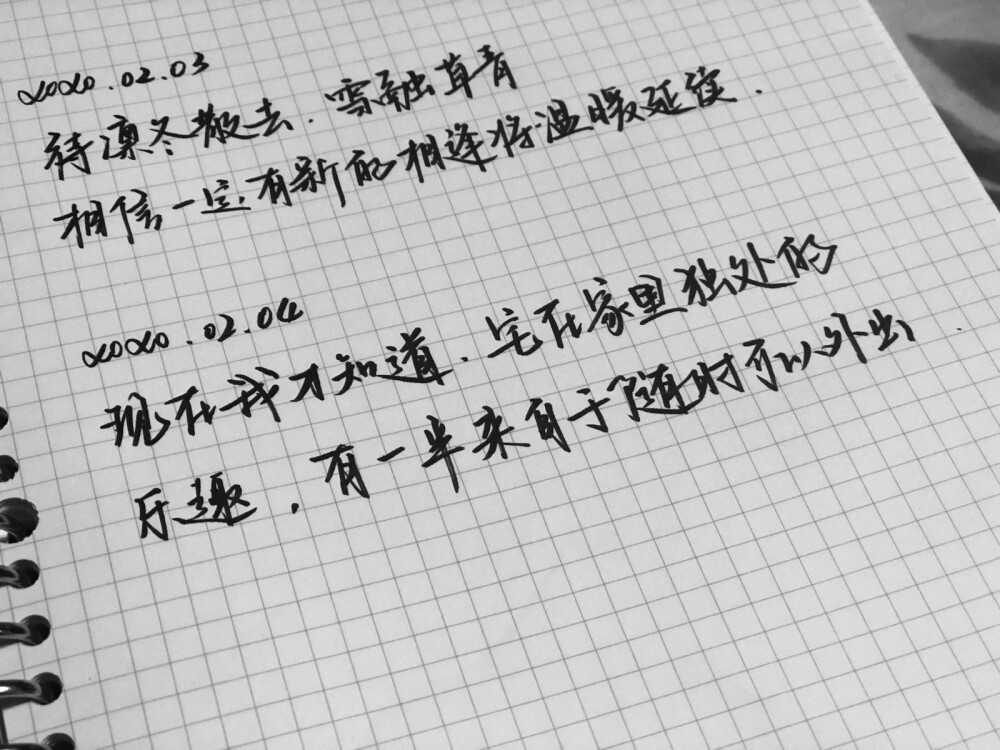 2020.02.03
待凛冬散去.雪融草青
相信一定有新的相逢将温暖延续.
2020.02.04
现在我才知道.宅在家里独处的
乐趣.有一半来自于随时可以外出.